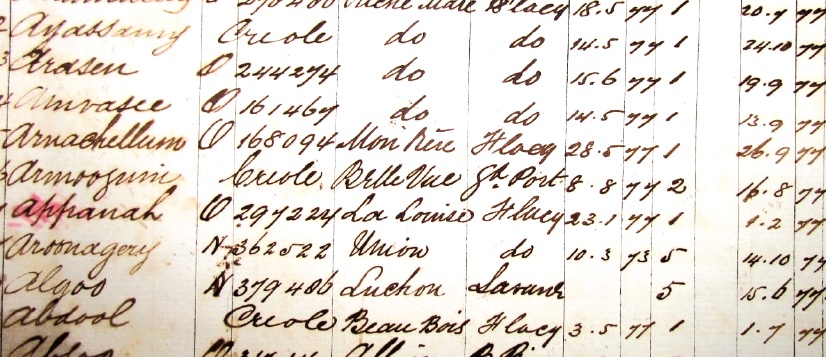 Riche Mare Flacq 18.5 77 1 20.7 77
2 Ayassamy Creole do do 14.5 77 1 24.10 77
3 Arasen O 244274 do do 15.6 77 1 19.9 77
4 Amvasee O 161467 do do 14.5 77 1 13.9 77
5 Arnachellum O 168094 Mon Rêve Flacq 28.5 77 1 26.9 77
6 Armoogum Creole Belle Vue Gd. Port 8.8 77 2 16.8 77
Appanah O 297224 La Louise Flacq 23.1 77 1 1.2 77
Aroonagery N 362522 Union do 10.3 73 5 14.10 77
Algoo N 379486 Luchon Savane 5 15.6 77
Abdool Creole Beau Bois Flacq 3.5 77 1 1.7 77